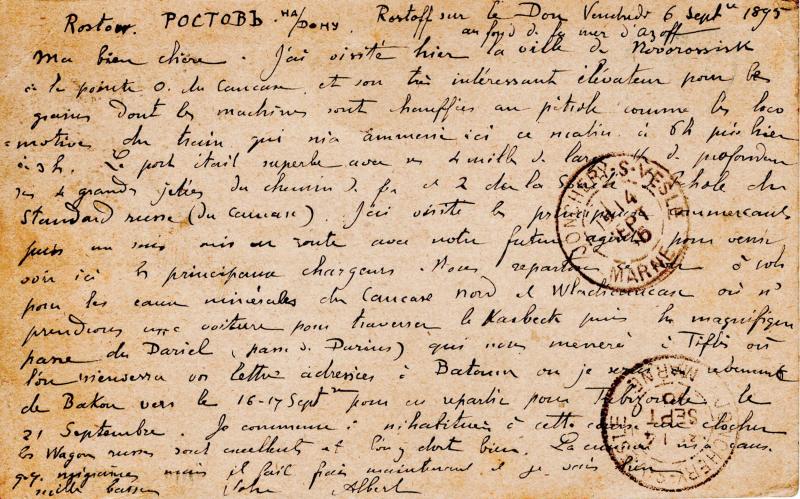 Rostow. РОСТОВЪ НА/ДОНУ Rostoff sur le Don Vendredi 6 Septre 1895
au fond de la mer d'azoff
Ma bien chère. J'ai visité hier la ville de Novorossisk
à la pointe O. du Caucase et son très intéressant élévateur pour les
grains dont les machines sont chauffées au pétrole comme les loco
=motives du train qui m'a ammené ici ce matin à 6h
à 3h. Le port était superbe avec ses 4 mille de large de profondeur
ses 4 grandes jetées du chemin de fer et 2 de la
Standard russe (du Caucase). J'ai visité les principaux commercants
puis me suis mis en route avec notre futur agent pour venir
voir ici les principaux chargeurs. Nous repartons à
pour les eaux minérales du Caucase Nord et Wladicaucase où n/
prendrons une voiture pour traverser le Kasbeck puis la magnifique
passe du Dariel (passe de Darius) qui nous mènera à Tiflis où
l'on m'enverra vos lettres adressées à Batoum où je serai revenant
de Bakou vers le 16-17 Septre pour en repartir pour Trébizonde le
21 Septembre. Je commence à m'habituer à cette course au clocher
les Wagons russes sont excellents et l'on y dort bien. La m'a causé
q.q. migraines mais il fait frais maintenant et je vais bien
mille baisers Votre Albert
JONCHERY-S-VESLE
14
SEPT
MARNE
JONCHERY-S-VESLE
14
SEPT
MARNE